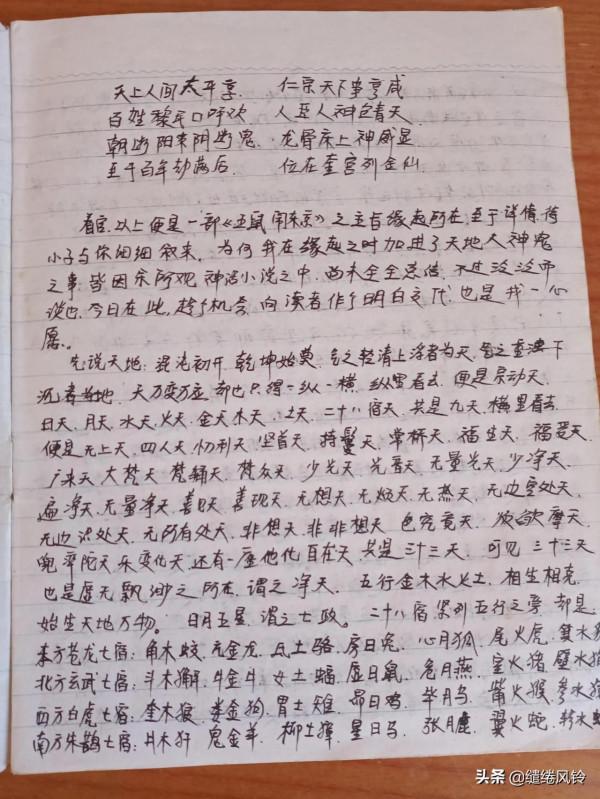 天上人间太平享 仁宗天下事亨咸
百姓黎民口呼欢 人正人神包青天
朝断阳来阴断鬼 龙骨床上神威显
至于百年劫落后 位在奎宫列金仙
看官,以上便是一部《五鼠闹东京》之主旨缘起所在,至于详情,待
小子与你细细叙来,为何我在缘起之时加进了天地人神鬼
之事,皆因余所观神话小说之中,尚未全全总结,不过泛泛而
谈也,今日在此,趁个机会,向读者作个明白交代,也是我一心
愿。
先说天地:混沌初开,乾坤始奠,气之轻清上浮者为天,气之重浊下
沉者为地,天万变万应,却也只得一纵一横,纵里看去,便是景动天、
日天、月天、水天、火天、金天、木天、土天、二十八宿天,共是九天,横里看去
便是无上天、四人天、忉利天、坚首天、持鬘天、常桥天、福生天、福爱天、
广果天、大梵天、梵辅天、梵众天、少光天、光音天、无量光天、少净天、
遍净天、无量净天、善见天、善现天、无想天、无烦天、无热天、无边空处天、
无边识处天、无所有处天、非想天、非非想天、色究竟天、须欲摩天、
兜率陀天、乐变化天,还有一座他化自在天,共是三十三天,可见三十三天
也是虚无飘渺之所在,谓之净天,五行金木水火土,相生相克,
始生天地万物。日月五星,谓之七政。二十八宿紧列五行之旁,却是:
东方苍龙七宿:角木蛟、亢金龙、氐土骆、房日兔、心月狐、尾火虎、箕水豹
北方玄武七宿:斗木獬、牛金牛、女土蝠、虚日鼠、危月燕、室火猪、壁水
西方白虎七宿:奎木狼、娄金狗、胃土雉、昴日鸡、毕月乌、觜火猴、参水猿
南方朱鹊七宿:井木犴、鬼金羊、柳土獐、星日马、张月鹿、翼火蛇、轸水
头条 @缱绻风铃